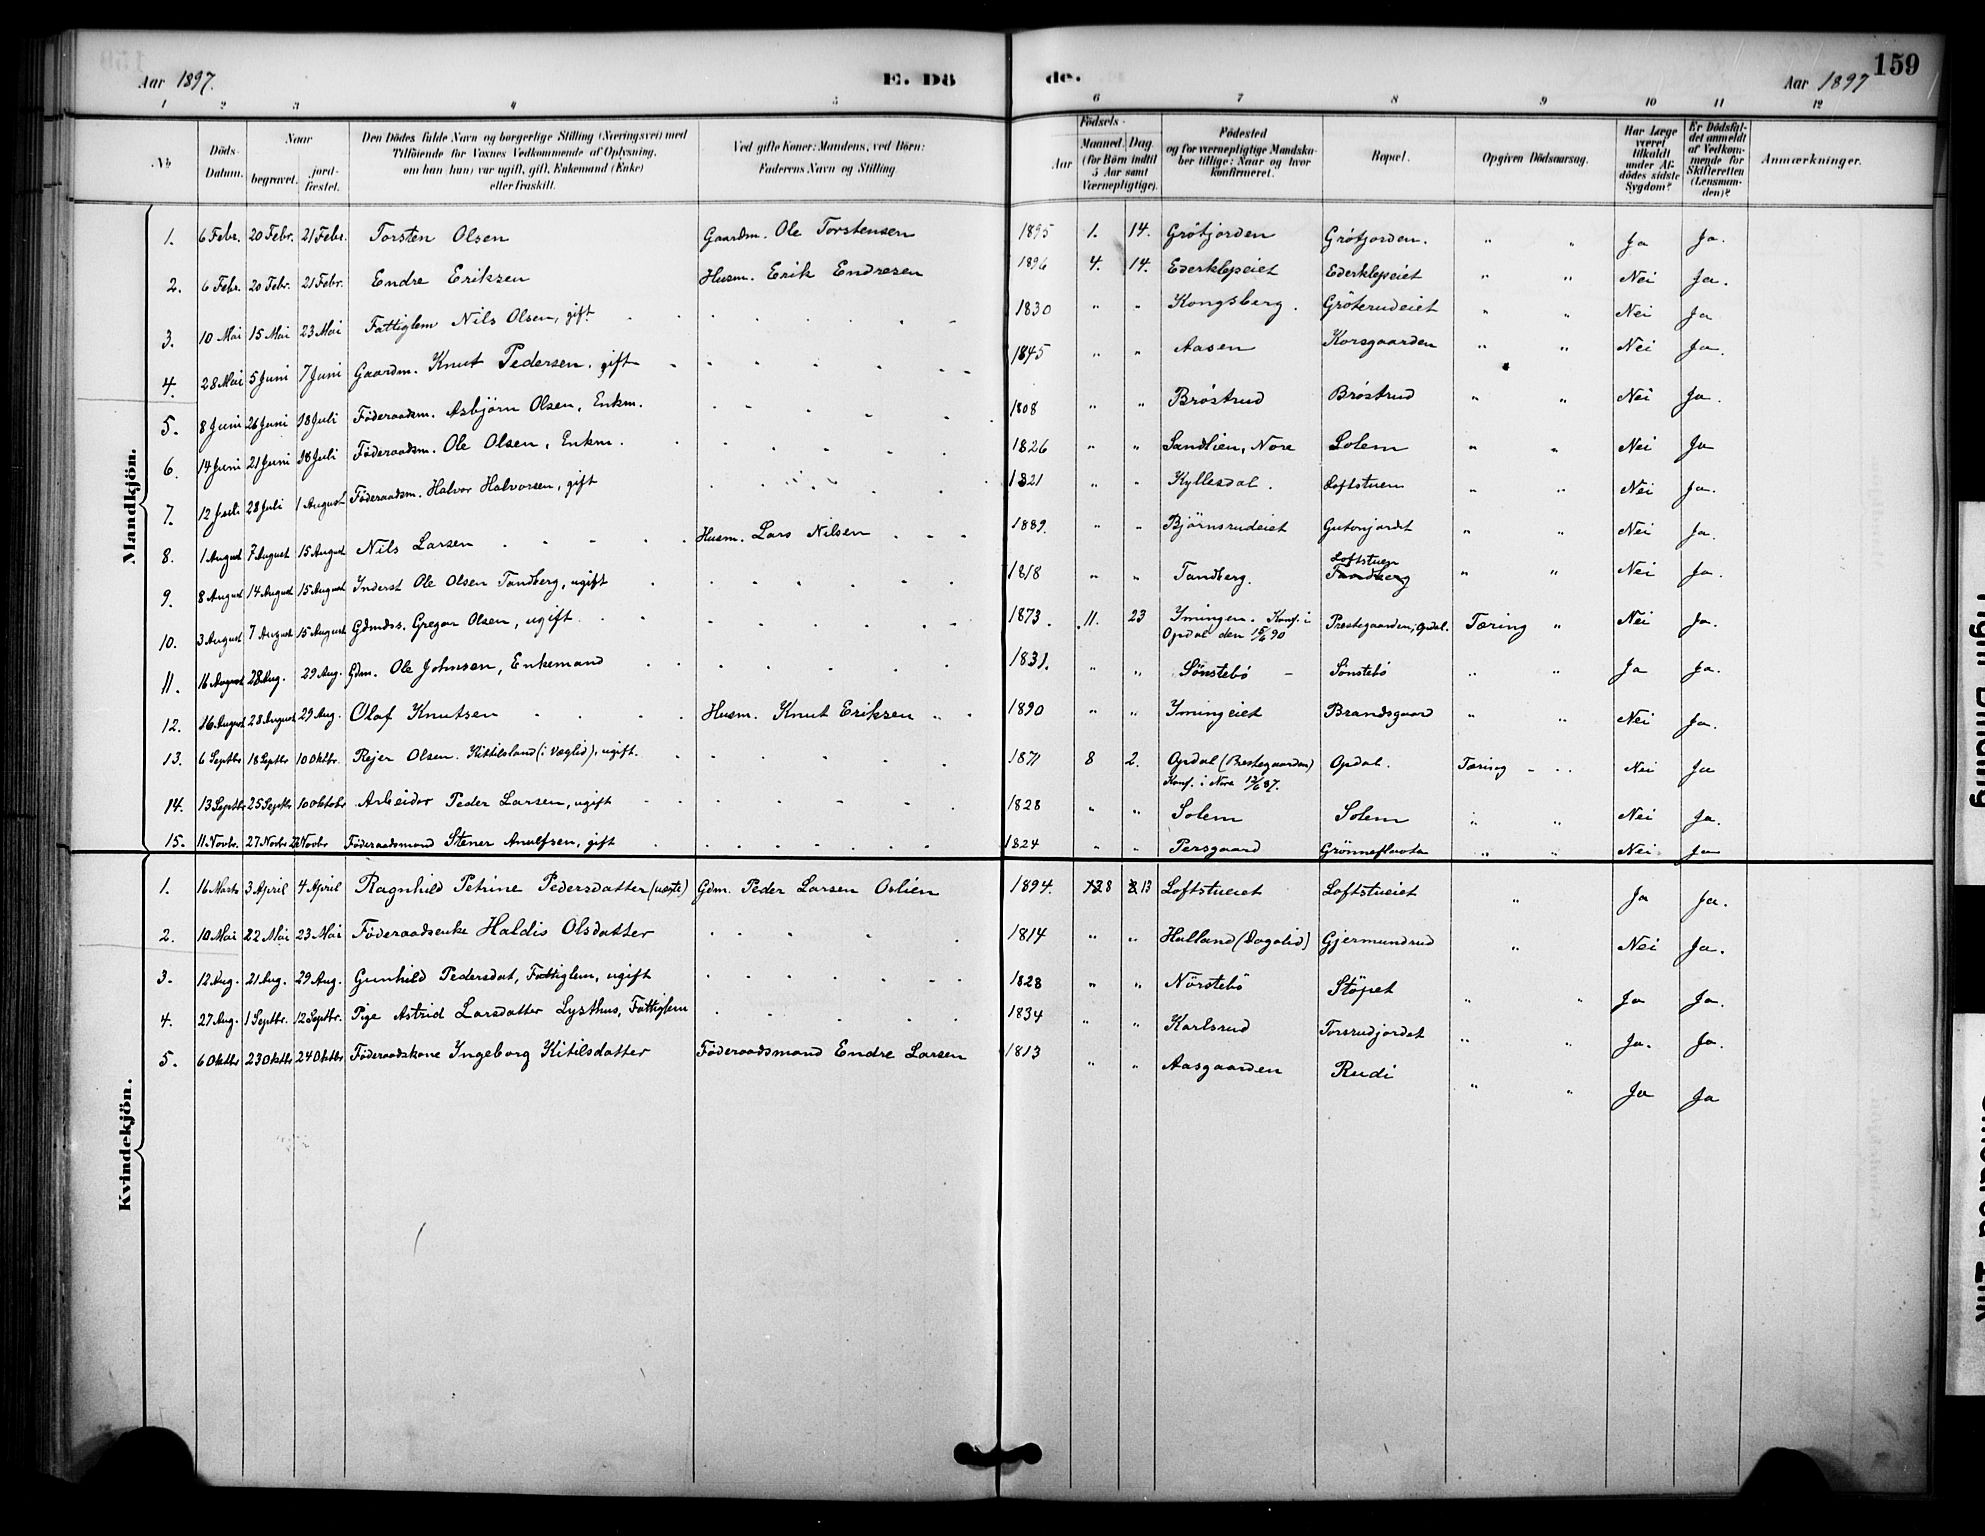 159
Aar 1897. E. Dö de. Aar 1897
1 2 3 4 5 6 7 8 9 10 11 12
No
Döds-Datum.
Naar
begravet.
jordfæstet.
Den Dödes fulde Navn og borgerlige Stilling (Næringsvei) med
Tilföiende for Voxnes Vedkommende af Oplysning,
om han (hun) var ugift, gift, Enkemand (Enke)
eller fraskilt.
Ved gifte Koner: Mandens, ved Börn:
Faderens Navn og Stilling
Födsels-
Aar
Maaned. Dag
(for Börn indtil
5 Aar samt
Værnepligtige).
Födested
og for værnepligtige Mandska-
ber tillige: Naar og hvor
konfirmeret.
Bopæl.
Opgiven Dödsaarsag.
Har Læge
været
tilkaldt
under Af-
dödes sidste
Sygdom?
Er Dödsfal-
det anmeldt
af Vedkom-
mende for
Skifteretten
(Lensman-
den)?
Anmærkninger.
Mandkjön.
1. 6 Febr. 20 Febr. 21 Febr. Torsten Olsen Gaardm. Ole Torstensen 1895 1. 14. Gröfjorden Gröfjorden. " " Ja Ja.
2. 6 Febr. 20 Febr. 21 Febr. Endre Eriksen Husm. Erik Endresen 1896 4. 14. Ederklepeiet Ederklepeiet " " Nei Ja.
3. 10 Mai 15 Mai 23 Mai Fattiglem Nils Olsen, gift 1830 " " Kongsberg. Gröterudeiet " " Nei Ja
4. 28 Mai 5 Juni 7 Juni Gaardm. Knut Pedersen, gift 1845 " " Aasen Korsgaarden " " Nei Ja.
5. 8 Juni 26 Juni 18 Juli Föderaadsm. Asbjörn Olsen, Enkm. 1808 " " Bröstrud Bröstrud " " Nei Ja.
6. 14 Juni 21 Juni 18 Juli Föderaadsm. Ole Olsen, Enkm. 1826 " " Sandlien, Nore Solem " " Nei Ja
7. 12 Juli 28 Juli 1 August Föderaadsm. Halvor Halvorsen, gift 1821 " " Kyllesdal. Loftstuen " " Nei Ja.
8. 1 August 7 August 15 August Nils Larsen Husm. Lars Nilsen 1889. " " Björnsrudeiet Gutonjordet " " Nei Ja.
9. 8 August 14 August 15 August Inderst Ole Olsen Tandberg, ugift 1818 " " Tandberg. Loftstuen Tandberg " " Nei Ja.
10. 3 August 7 August 15 August Gdmds. Gregar Olsen, ugift 1873. 11. 23 Ymingen. Konf. i Prestegaarden, Opdal. Tæring " Nei Ja.
Opdal den 15/6 90
11. 16 August 28 Aug. 29 Aug. Gdm. Ole Johnsen, Enkemand 1831. " " Sönstebö Sönstebö " " Ja Ja.
12. 16 August 28 August 29 Aug. Olaf Knutsen Husm. Knut Eriksen 1890 " " Ymingeiet Brandsgaard " " Nei Ja.
13. 6 Septbr 18 Septbr 10 Oktbr. Rejer Olsen Kittilsland (i Væglid), ugift. 1871 8 2. Opdal (Prestegaarden) Opdal. Tæring Nei Ja
Konf. i Nore 12/6 87.
14. 13 Septbr 25 Septbr 10 Oktobr Arbeider Peder Larsen, ugift 1828 " " Solem Solem " " Nei Ja.
15. 11 Novbr. 27 Novbr 28 Novbr Föderaadsmand Stener Anulfsen, gift 1824 " " Persgaard Grönneflaata " " Nei. Ja
Kvindekjön.
1. 16 Marts 3 April 4 April Ragnhild Petrine Pedersdatter (uægte) Gdm. Peder Larsen Oslien 1894. 8 13 Loftstueiet Loftstueiet " Ja Ja.
2. 10 Mai 22 Mai 23 Mai Föderaadsenke Haldis Olsdatter 1814 " " Halland (Dagalid) Gjermundrud " Nei Ja.
3. 12 Aug. 21 Aug. 29 Aug. Gunhild Pedersdat, Fattiglem, ugift 1828 " " Nörstebö Stöpet " " Ja Ja.
4. 27 Aug. 1 Septbr. 12 Septbr. Pige Astrid Larsdatter Lysthus, Fattiglem 1834 " " Karlsrud Torsrudjordet " " Ja. Ja.
5. 6 Oktbr 23 Oktbr 24 Oktbr Föderaadskone Ingeborg Kitilsdatter Föderaadsmand Endre Larsen 1813 " " Aasgaarden Rudi " " Ja Ja